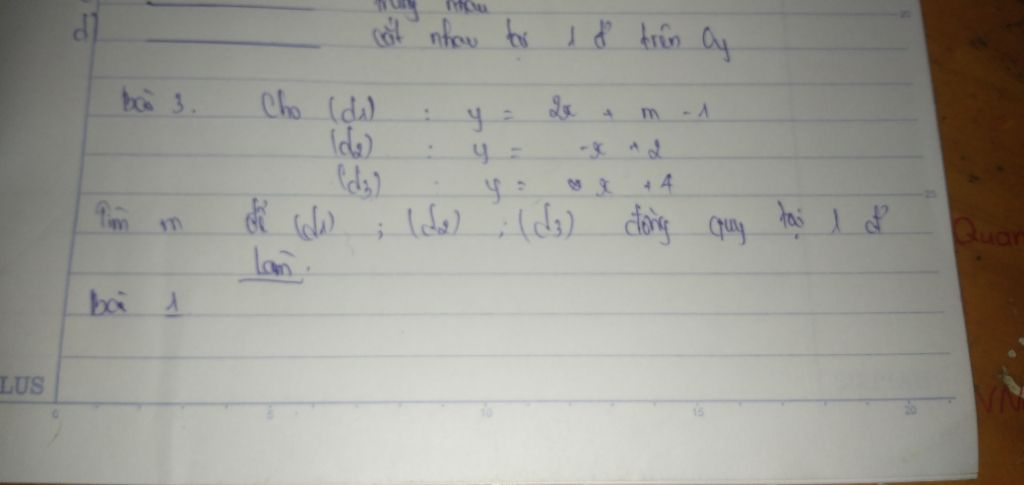 trùng nhau
d) cắt nhau tại 1 đ' trên Oy
bài 3. Cho (d1) : y = 2x + m - 1
(d2) : y = -x + 2
(d3) : y = x + 4
Tìm m để (d1) ; (d2) ; (d3) đồng quy tại 1 đ'
Làm.
bài 1
LUS
0 5 10 15 20
25
Quan
VN